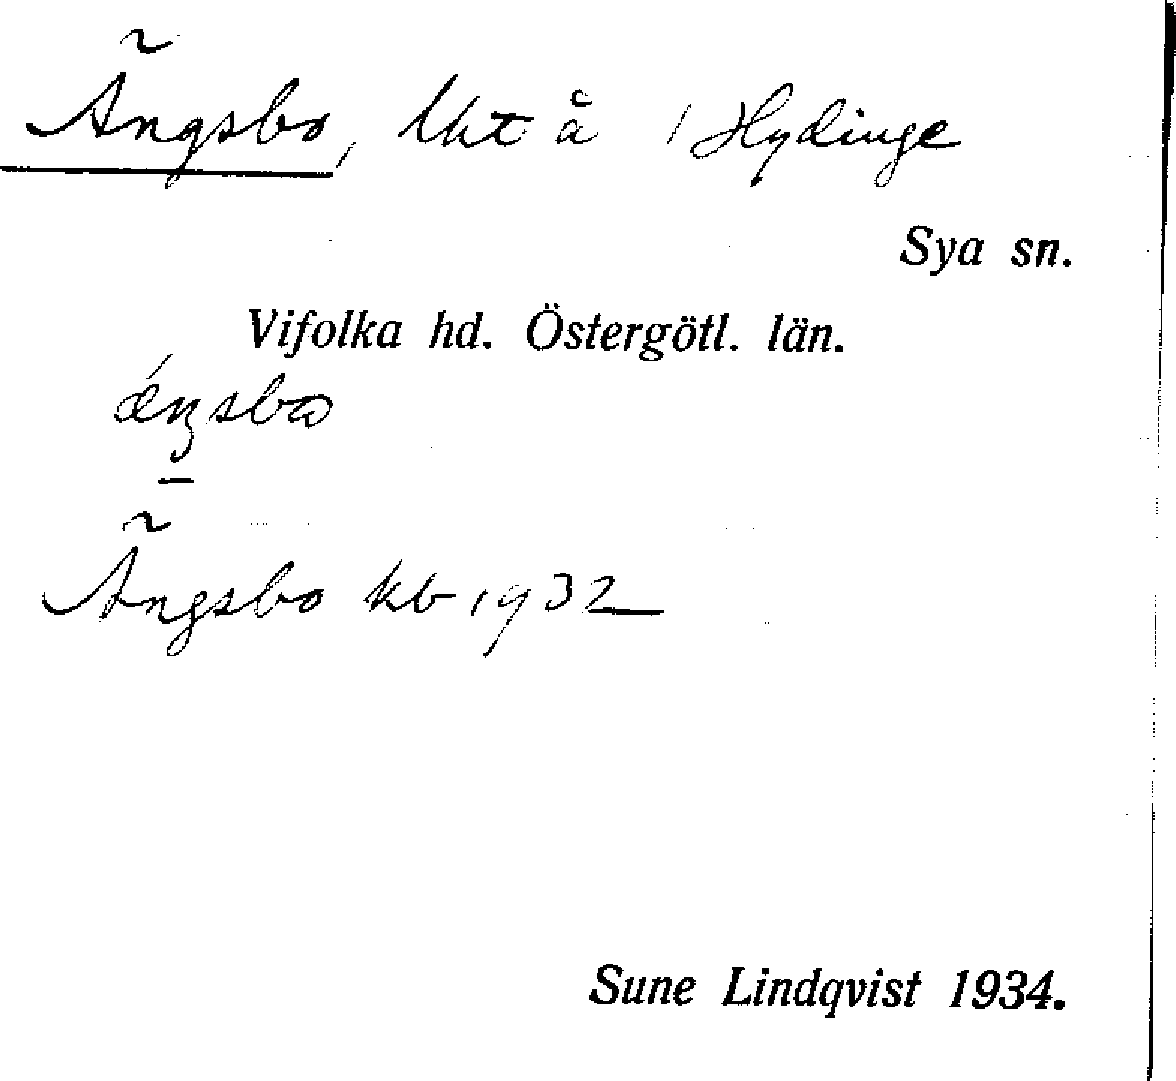 Ängsbo, lht å 1 Hydinge
Sya sn.
Vifolka hd. Östergötl. län.
ǽŋsbɷ
Ängsbo kb 1932
Sune Lindqvist 1934.